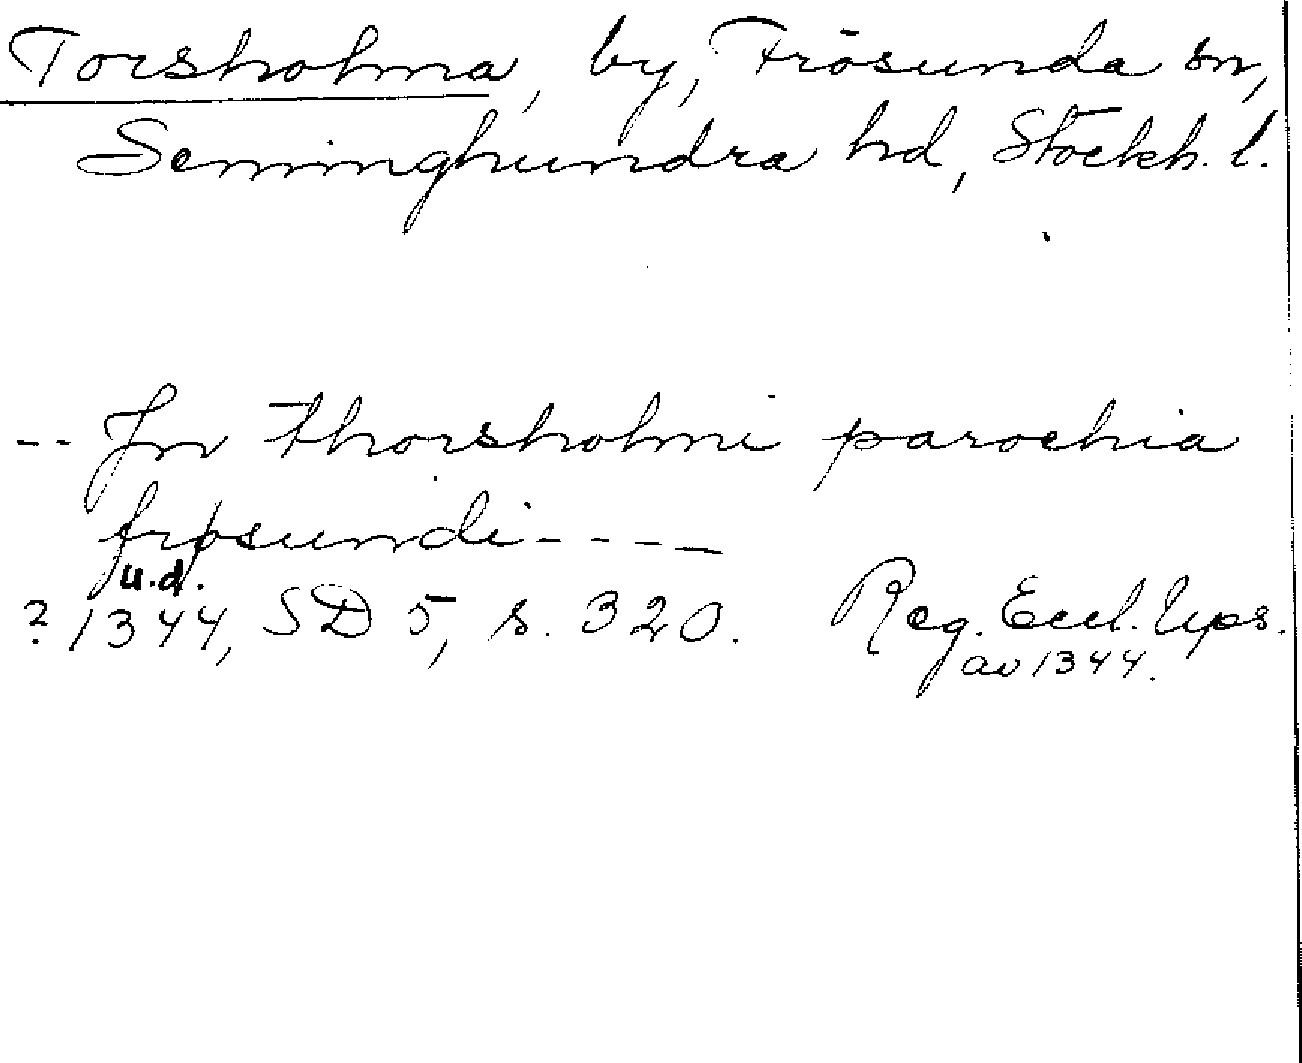 Torsholma, by, Frösunda sn,
Seminghundra hd, Stockh. l.
-- Jn thorsholmi parochia
frøsundi ----
u.d.
? 1344, SD 5, s. 320. Reg. Eccl. Ups.
av 1344.